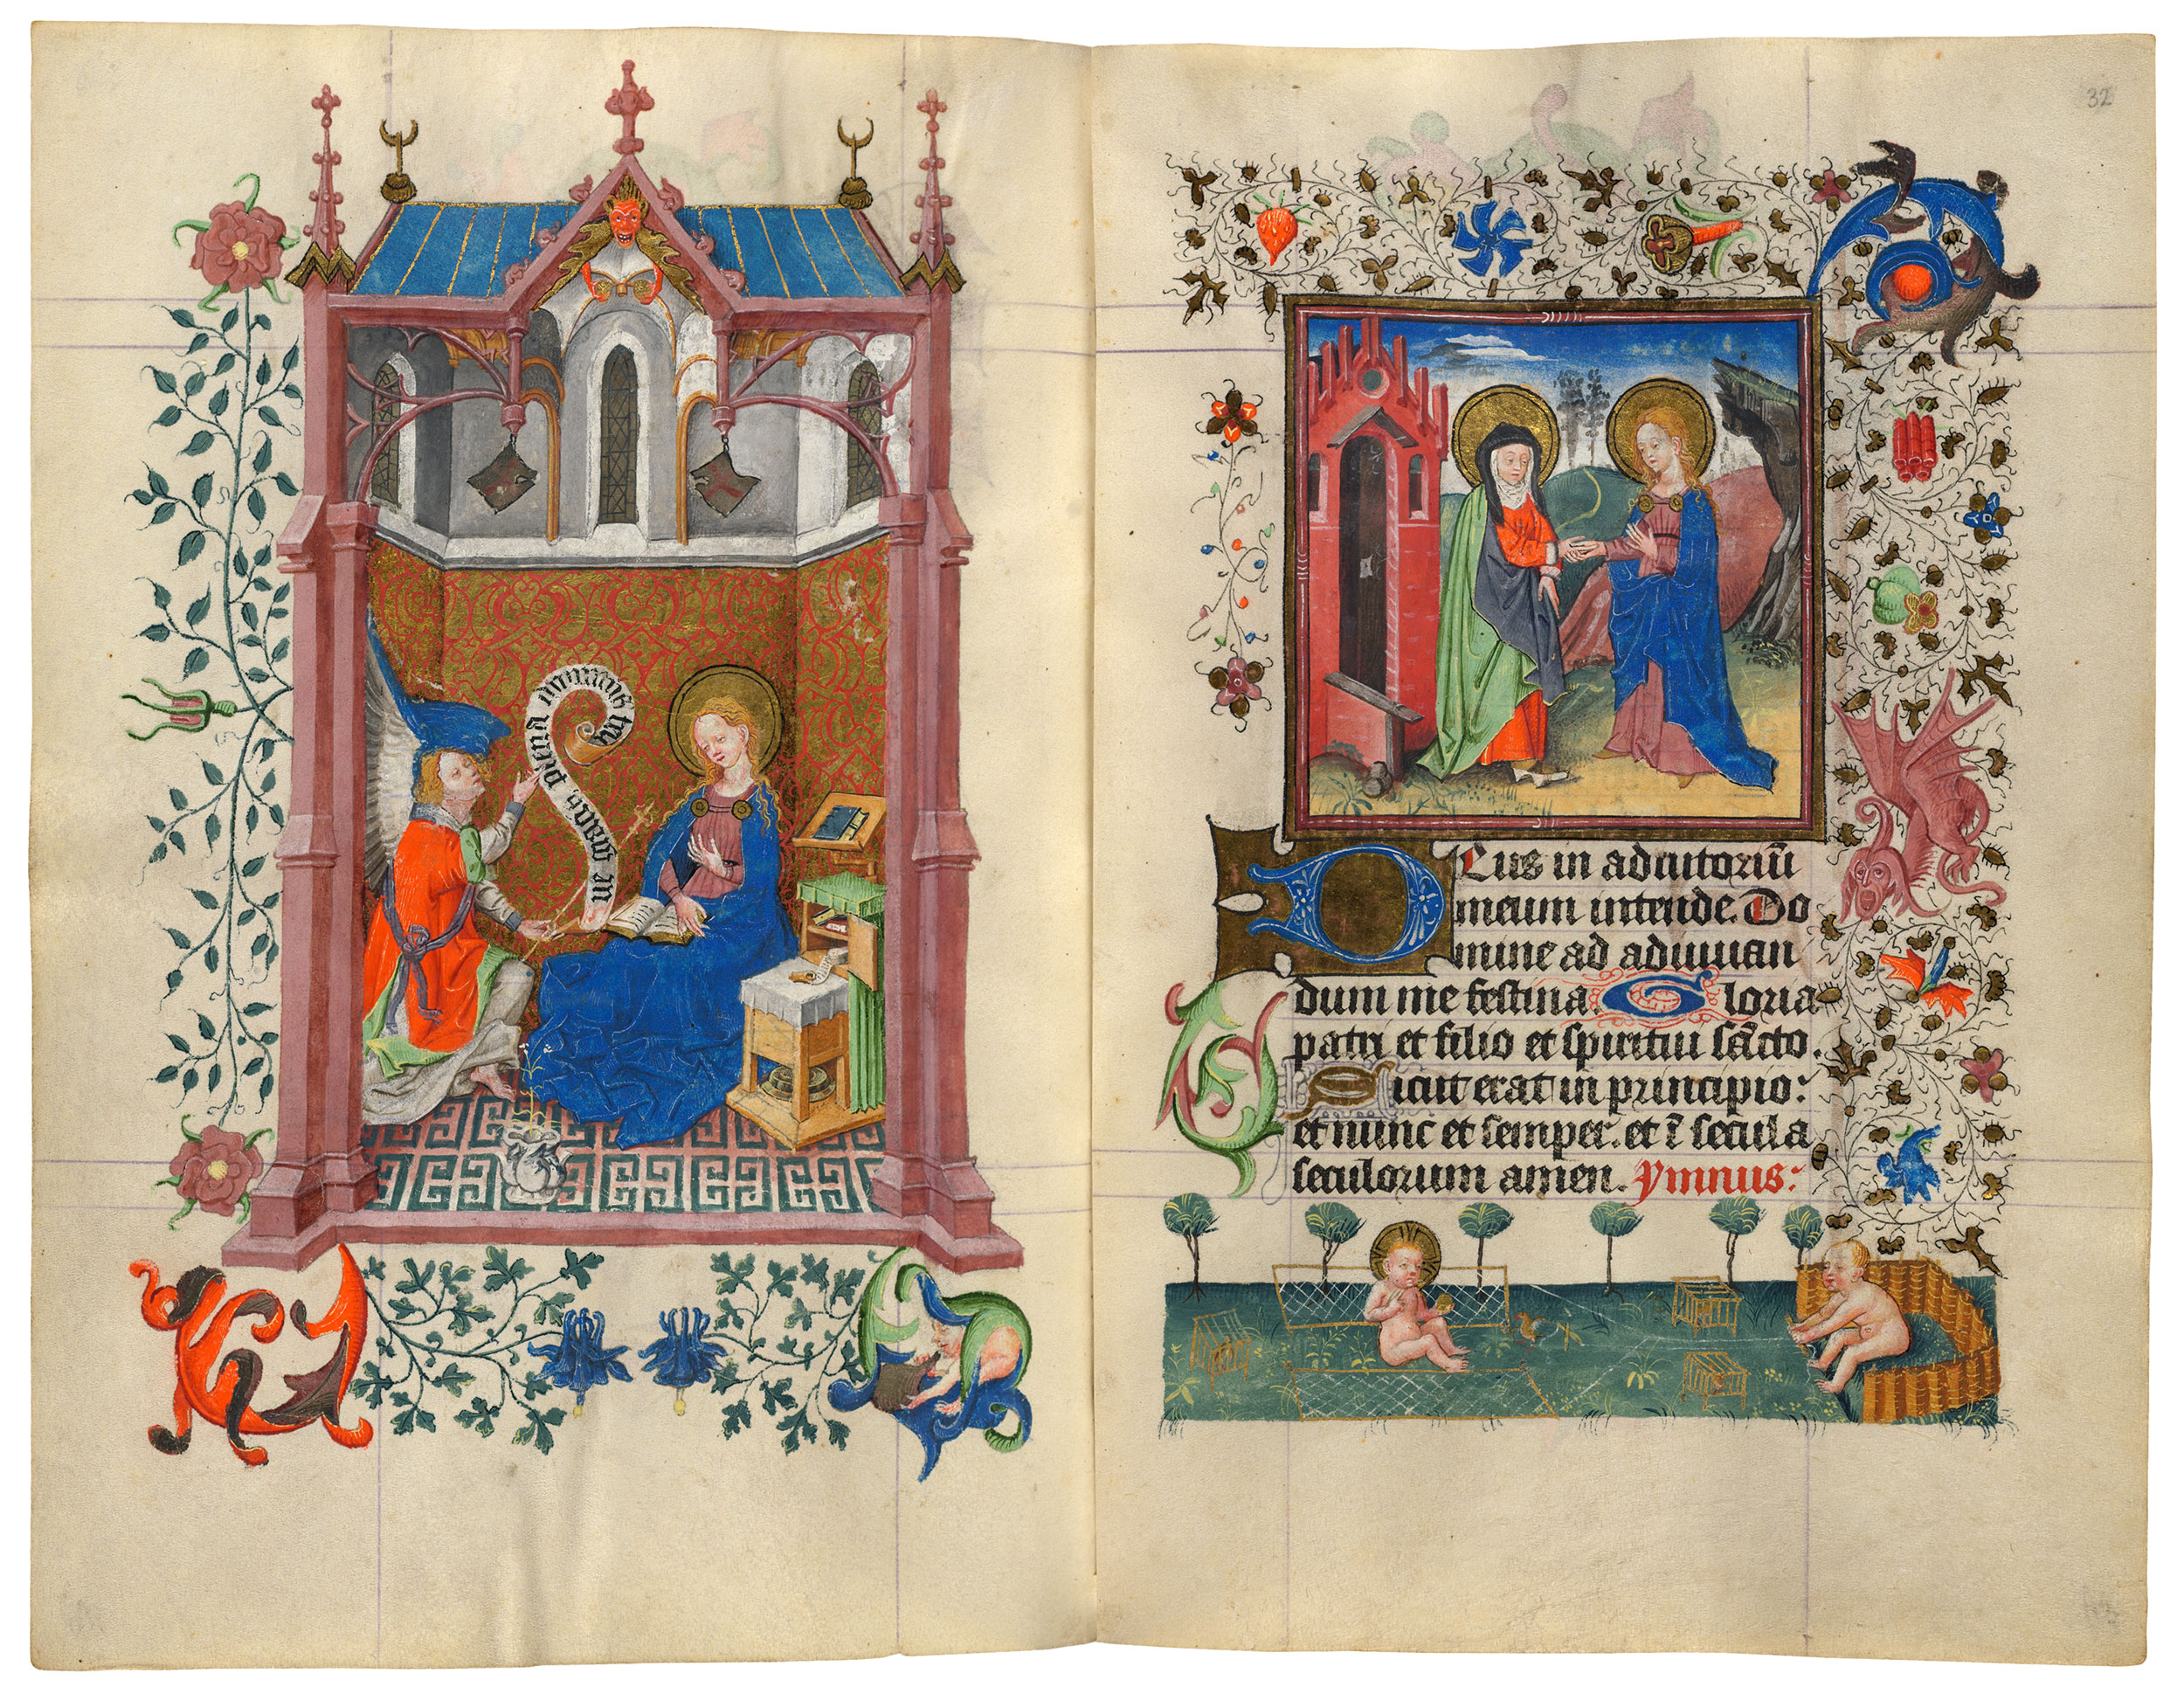 plena dominus
32
Deus in adiutoriū
meum intende. Do
mine ad adiuuan
dum me festina. Gloria
patri et filio et spiritui sācto.
Sicut erat in principio:
et nunc et semper. et ī secula
seculorum amen. Ymnus: